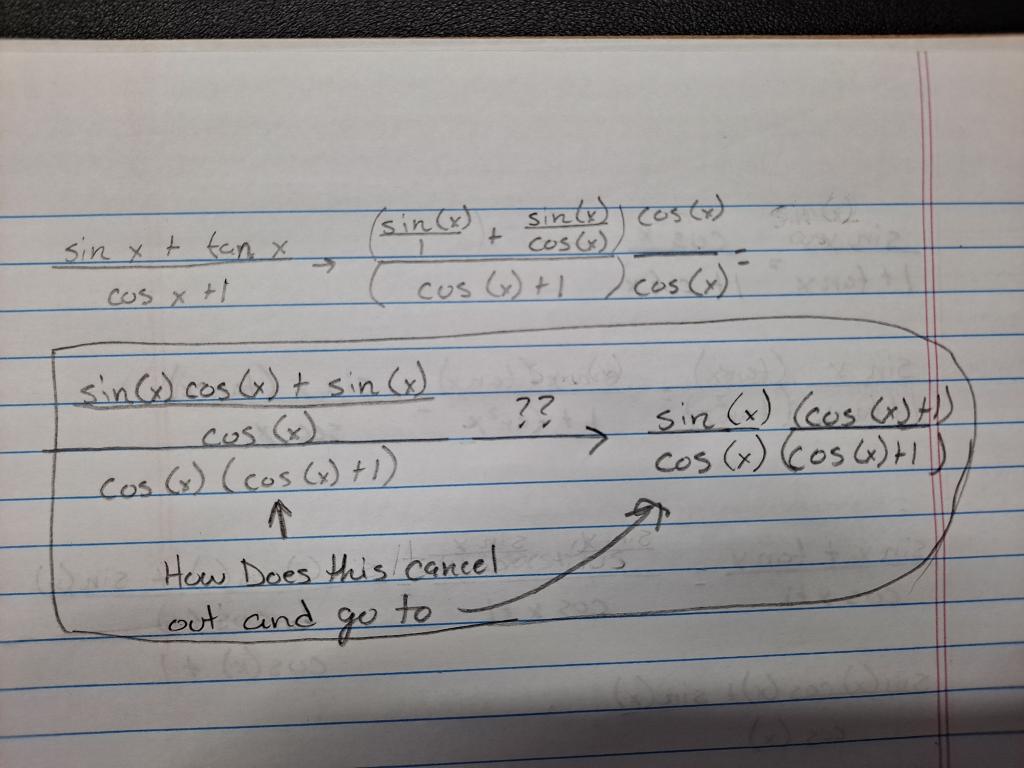 sin x + tan x / cos x + 1 → (sin(x)/1 + sin(x)/cos(x)) / (cos(x)+1) cos(x)/cos(x) =
sin(x) cos(x) + sin(x) / cos(x) / cos(x) (cos(x)+1) ?? → sin(x) (cos(x)+1) / cos(x) (cos(x)+1)
↑
How Does this cancel
out and go to